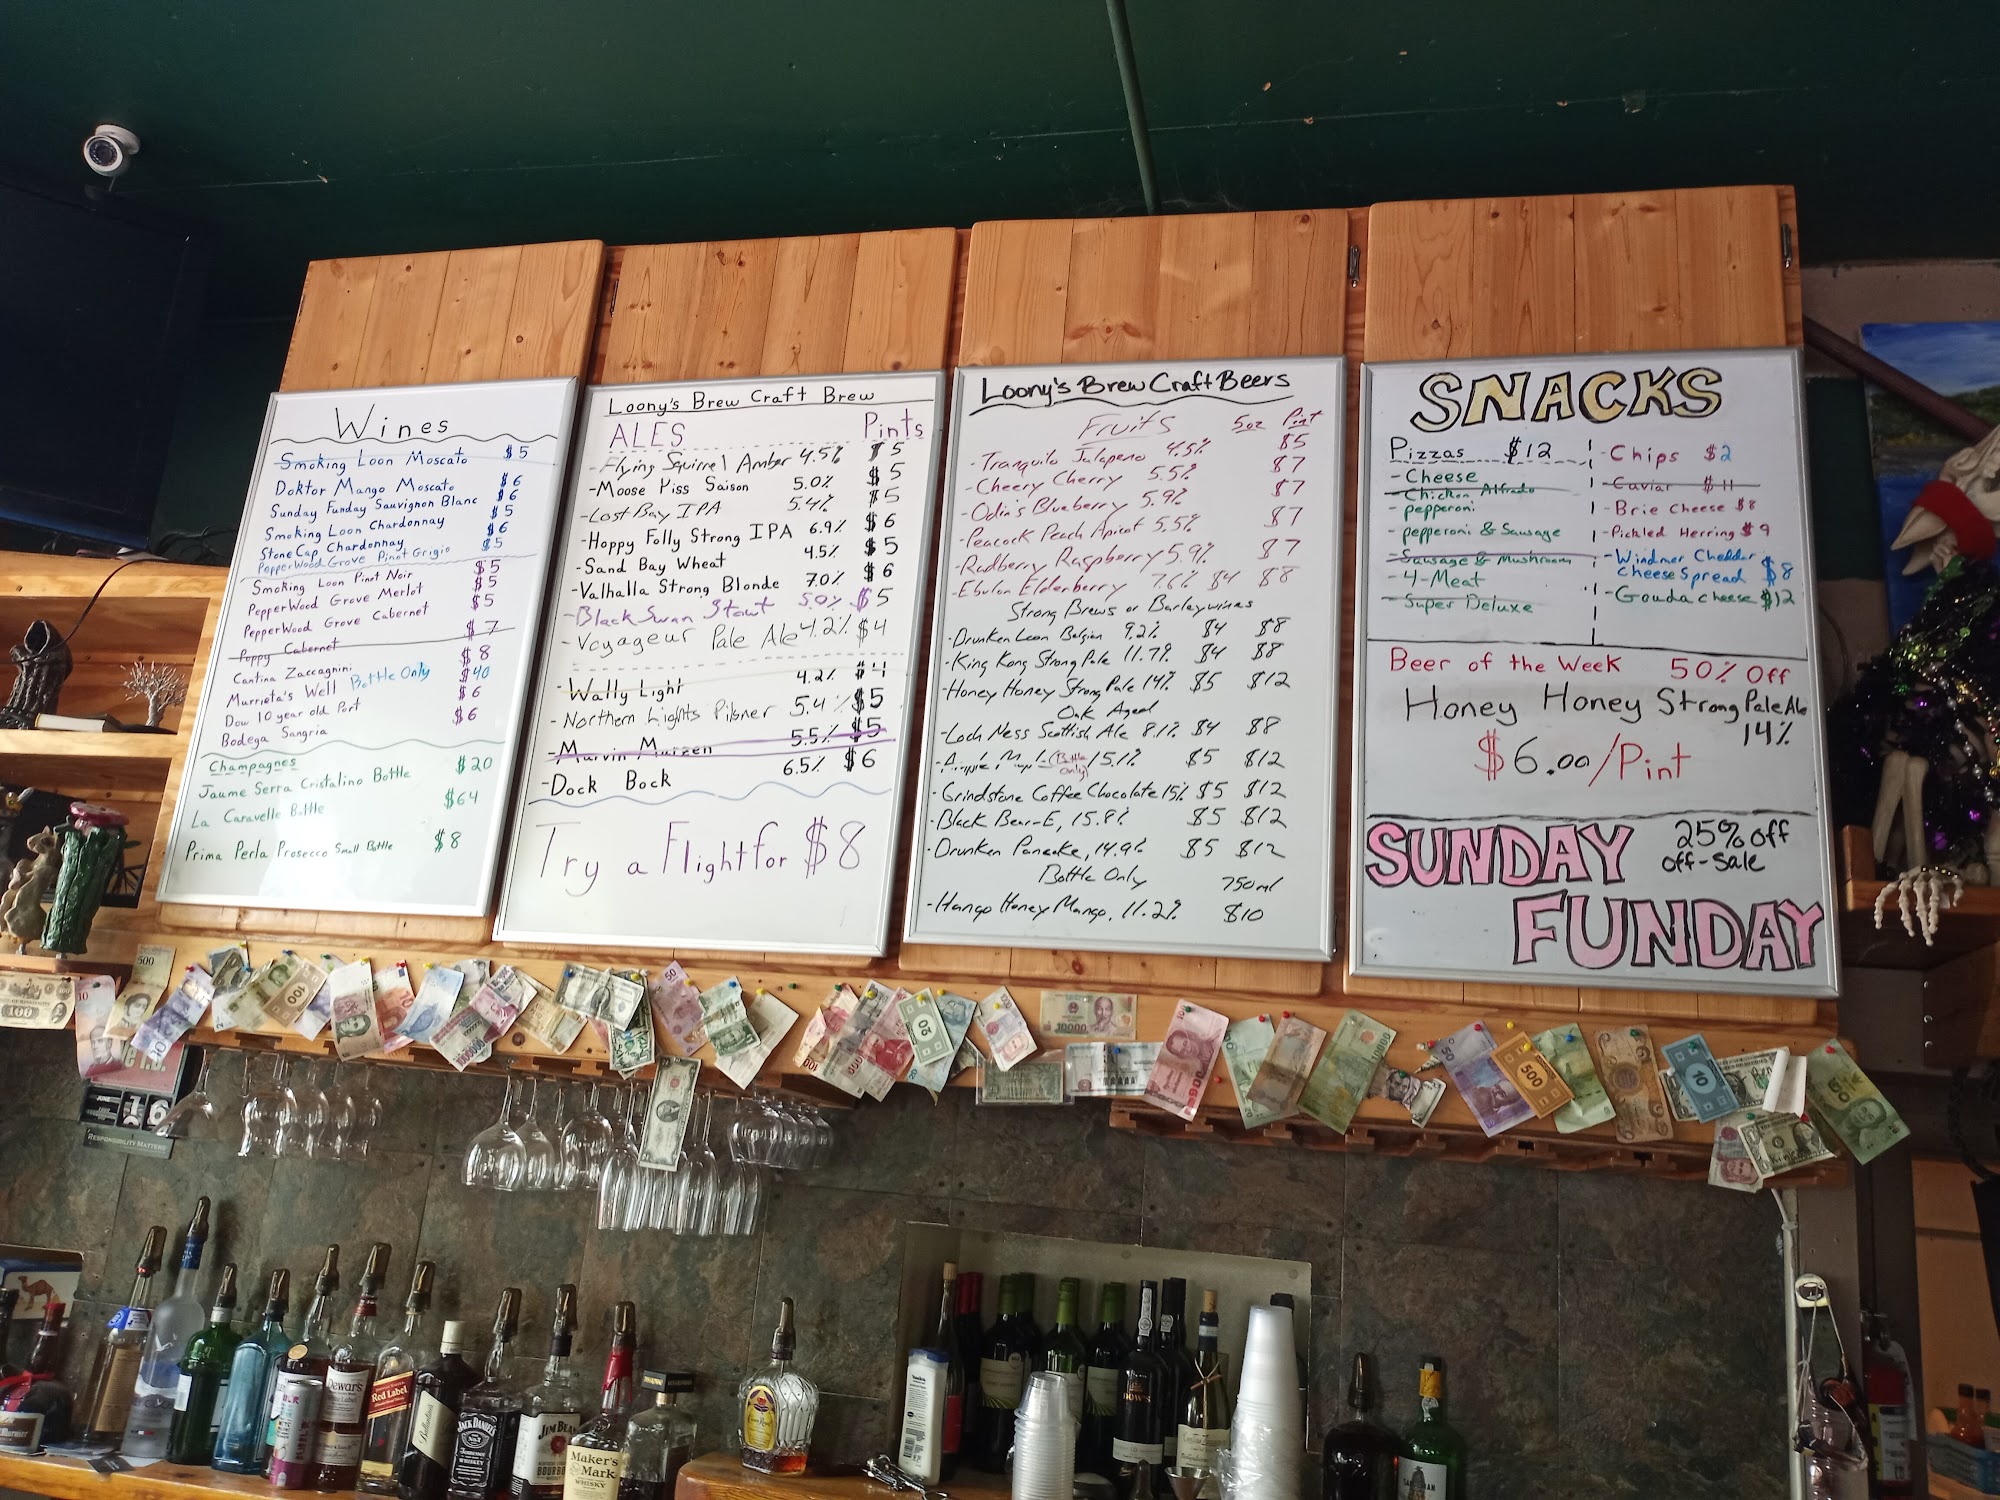 Wines
Smoking Loon Moscato $5
Doktor Mango Moscato $6
Sunday Funday Sauvignon Blanc $6
Smoking Loon Chardonnay $5
Stone Cap Chardonnay $6
PepperWood Grove Pinot Grigio $5
Smoking Loon Pinot Noir $5
PepperWood Grove Merlot $5
PepperWood Grove Cabernet $5
Poppy Cabernet $7
Cantina Zaccagnini $8
Murrieta's Well Bottle Only $40
Dow 10 year old Port $6
Bodega Sangria $6
Champagnes
Jaume Serra Cristalino Bottle $20
La Caravelle Bottle $64
Prima Perla Prosecco Small Bottle $8
Loony's Brew Craft Brew
ALES Pints
-Flying Squirrel Amber 4.5% $5
-Moose Kiss Saison 5.0% $5
-Lost Bay IPA 5.4% $5
-Hoppy Folly Strong IPA 6.9% $6
-Sand Bay Wheat 4.5% $5
-Valhalla Strong Blonde 7.0% $6
-Black Swan Stout 5.0% $5
-Voyageur Pale Ale 4.2% $4
-Wally Light 4.2% $4
-Northern Lights Pilsner 5.4% $5
-Marvin Marzen 5.5% $5
-Dock Bock 6.5% $6
Try a Flight for $8
Loony's Brew Craft Beers
Fruits 5oz Pint
-Tranquilo Jalapeno 4.5% $5
-Cheery Cherry 5.5% $7
-Odin's Blueberry 5.9% $7
-Peacock Peach Apricot 5.5% $7
-Radberry Raspberry 5.9% $7
-Ebulon Elderberry 7.6% $4 $8
Strong Brews or Barleywines
-Drunken Loon Belgian 9.2% $4 $8
-King Kong Strong Pale 11.7% $4 $8
-Honey Honey Strong Pale 14% $5 $12
Oak Aged
-Loch Ness Scottish Ale 8.1% $4 $8
(Bottle Only) 15.1% $5 $12
-Grindstone Coffee Chocolate 15% $5 $12
-Black Bear-E, 15.8% $5 $12
-Drunken Pancake, 14.9% $5 $12
Bottle Only 750ml
-Hango Honey Mango, 11.2% $10
SNACKS
Pizzas $12
-Cheese
-Chicken Alfredo
-pepperoni
-pepperoni & Sausage
-Sausage & Mushroom
-4-Meat
-Super Deluxe
-Chips $2
-Caviar $11
-Brie Cheese $8
-Pickled Herring $9
-Windmer Cheddar
Cheese Spread $8
-Gouda cheese $12
Beer of the Week 50% Off
Honey Honey Strong Pale Ale
14%
$6.00/Pint
SUNDAY
FUNDAY
25% off
off-sale
500
100
50
100
20
10000
50
500
10
50
JUNE
16
RESPONSIBILITY MATTERS
Dewar's
Red Label
Ballantine's
JACK DANIEL'S
JIM BEAM
BOURBON
Maker's
Mark
WHISKY
DOW'S